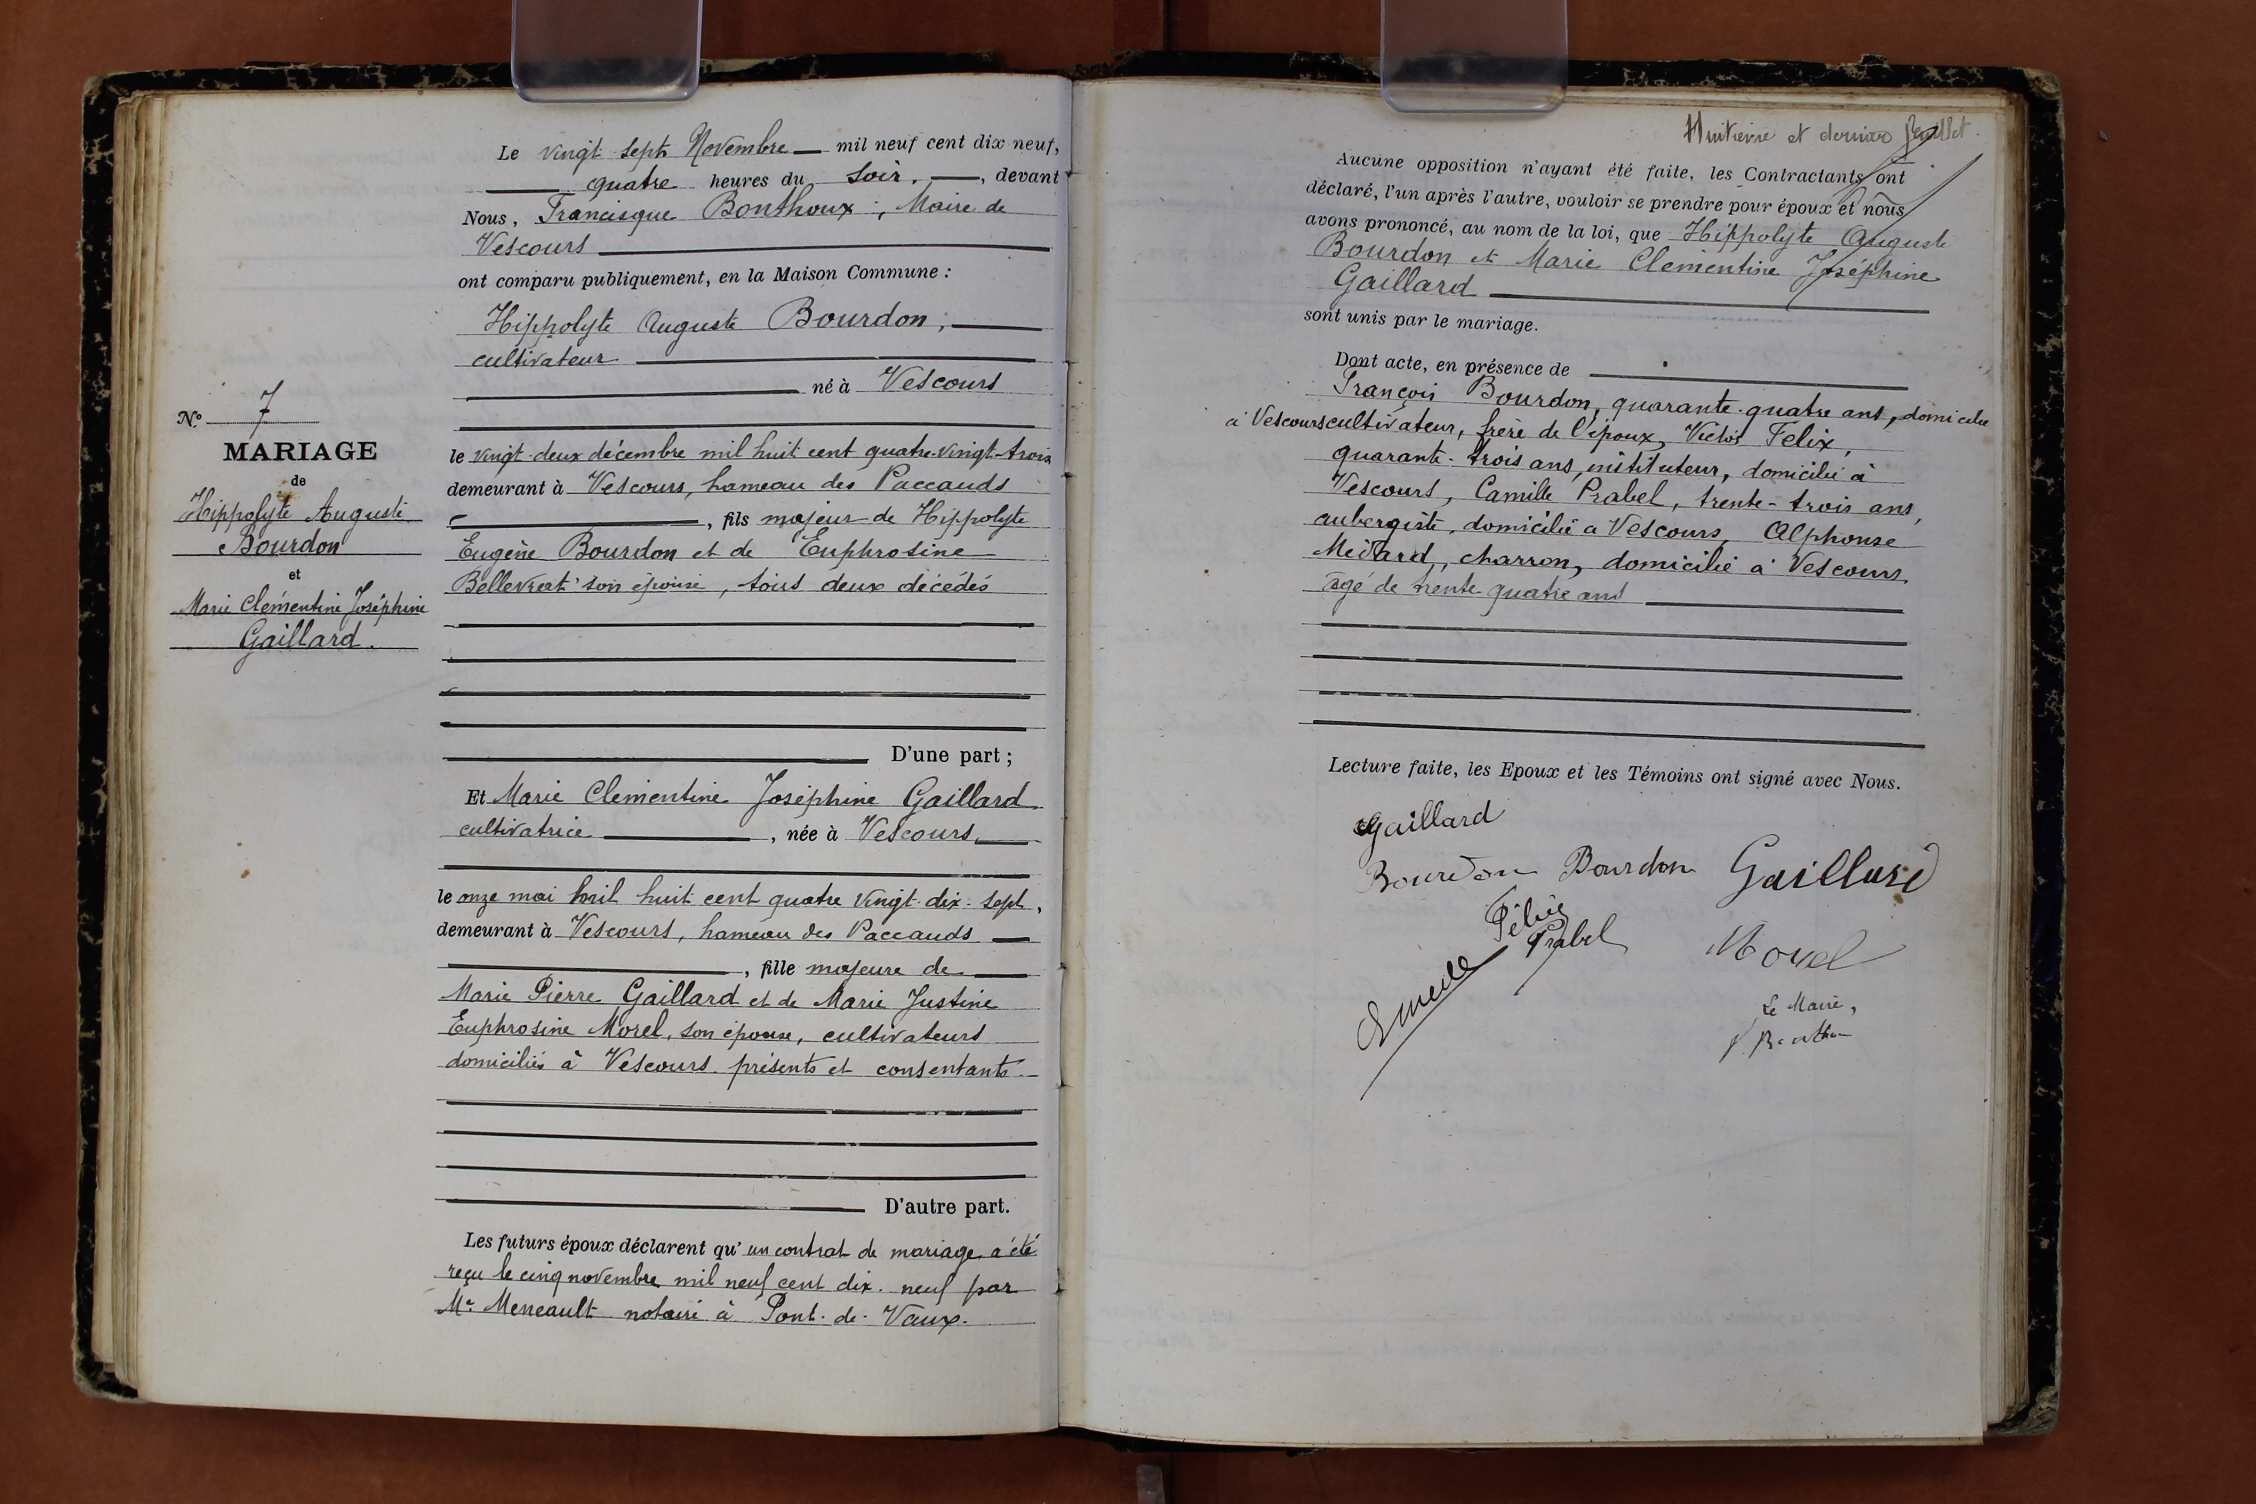 N.º 7
MARIAGE
de
Hippolyte Auguste
Bourdon
et
Marie Clémentine Joséphine
Gaillard.
Le vingt sept Novembre mil neuf cent dix neuf,
quatre heures du soir, devant
Nous, Francisque Bonthoux, Maire de
Vescours
ont comparu publiquement, en la Maison Commune :
Hippolyte Auguste Bourdon,
cultivateur
né à Vescours
le vingt-deux décembre mil huit cent quatre-vingt-trois
demeurant à Vescours, hameau des Paccauds
, fils majeur de Hippolyte
Eugène Bourdon et de Euphrosine
Bellevrat son épouse, tous deux décédés
D'une part ;
Et Marie Clémentine Joséphine Gaillard
cultivatrice , née à Vescours,
le onze mai mil huit cent quatre vingt-dix-sept,
demeurant à Vescours, hameau des Paccauds
, fille majeure de
Marie Pierre Gaillard et de Marie Justine
Euphrosine Morel, son épouse, cultivateurs
domiciliés à Vescours présents et consentants
D'autre part.
Les futurs époux déclarent qu'un contrat de mariage a été
reçu le cinq novembre mil neuf cent dix-neuf par
Me Meneault notaire à Pont-de-Vaux.
Huitième et dernier feuillet.
Aucune opposition n'ayant été faite, les Contractants ont
déclaré, l'un après l'autre, vouloir se prendre pour époux et nous
avons prononcé, au nom de la loi, que Hippolyte Auguste
Bourdon et Marie Clémentine Joséphine
Gaillard
sont unis par le mariage.
Dont acte, en présence de
François Bourdon, quarante-quatre ans, domicilié
à Vescours cultivateur, frère de l'époux, Victor Felix,
quarante-trois ans, instituteur, domicilié à
Vescours, Camille Prabel, trente-trois ans,
aubergiste, domicilié à Vescours, Alphonse
Médard, charron, domicilié à Vescours
âgé de trente-quatre ans
Lecture faite, les Epoux et les Témoins ont signé avec Nous.
Gaillard
Bourdon Bourdon Gaillard
Félix
Prabel Morel
Le Maire,